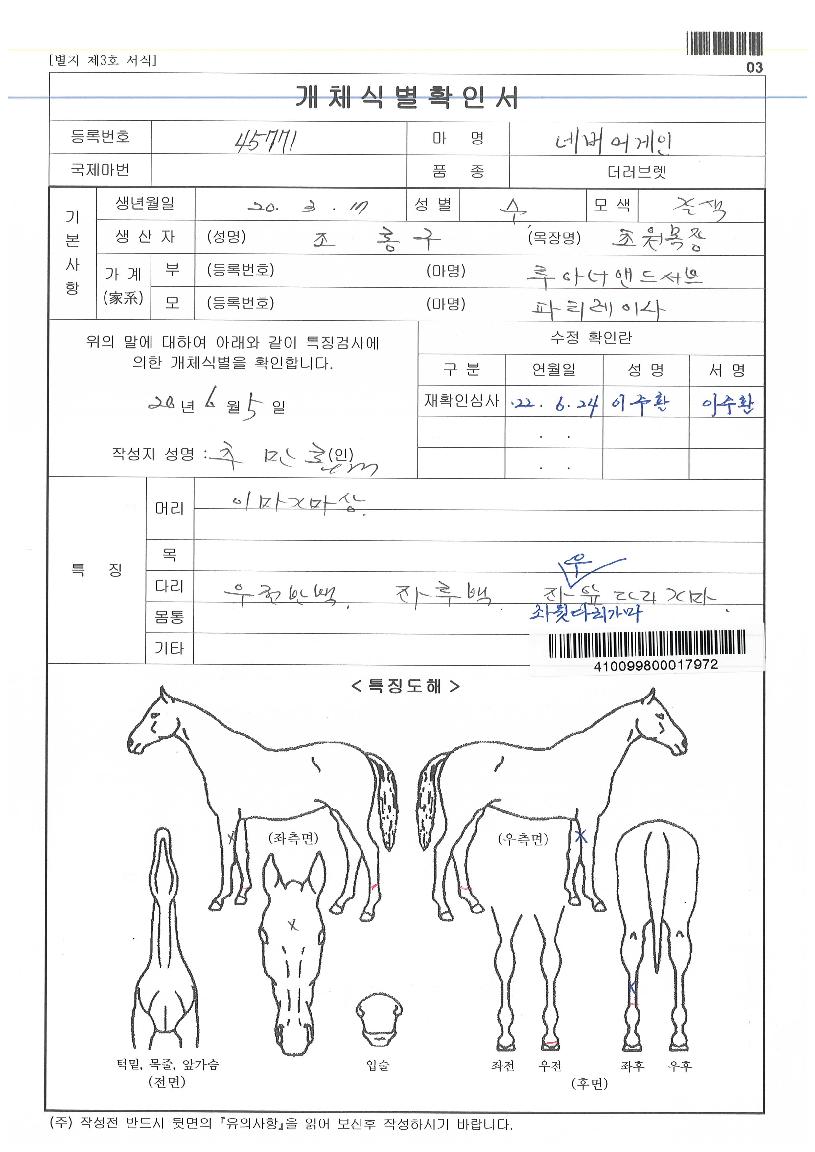 [별지 제3호 서식]
03
개체식별확인서
등록번호 45771 마 명 네버어게인
국제마번 품 종 더러브렛
기본사항
생년월일 20. 3. 17 성 별 수 모 색
생 산 자 (성명) 조 홍 구 (목장명) 조원목장
가 계 (家系) 부 (등록번호) (마명) 루아너앤드서브
모 (등록번호) (마명) 파티레이사
위의 말에 대하여 아래와 같이 특징검사에
의한 개체식별을 확인합니다.
20년 6월 5일
작성지 성명 : 추 민 (인)
수정 확인란
구 분 연월일 성 명 서 명
재확인심사 .22. 6. 24 이주환 이주환
. .
. .
특 징
머리 이마가마상.
목
우
다리 우전반백. 좌후백 좌앞다리가마.
좌뒷다리가마
몸통
기타
410099800017972
< 특징도해 >
(좌측면) (우측면)
턱밑, 목줄, 앞가슴
(전면)
입술
좌전 우전 좌후 우후
(후면)
(주) 작성전 반드시 뒷면의 『유의사항』을 읽어 보신후 작성하시기 바랍니다.